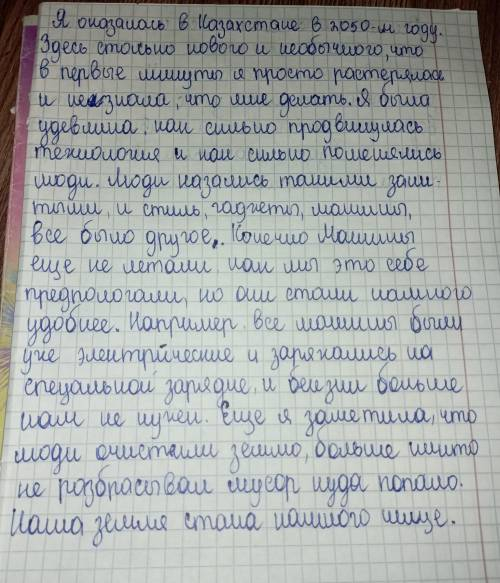 Я оказалась в Казахстане в 2050-м году.
Здесь столько нового и необычного, что
в первые минуты я просто растерялась
и не знала, что мне делать. Я была
удевлина, как сильно продвинулась
технология и как сильно поменялись
люди. Люди казались такими заня-
тыми, и стиль, гаджеты, машины,
все было другое. Конечно Машины
еще не летали как мы это себе
предпологали, но они стали намного
удобнее. Например все машины были
уже электрические и заряжались на
спецальной зарядке, и бензин больше
нам не нужен. Еще я заметила, что
люди очистили землю, больше никто
не разбрасывал мусор куда попало.
Наша земля стала намного чище.